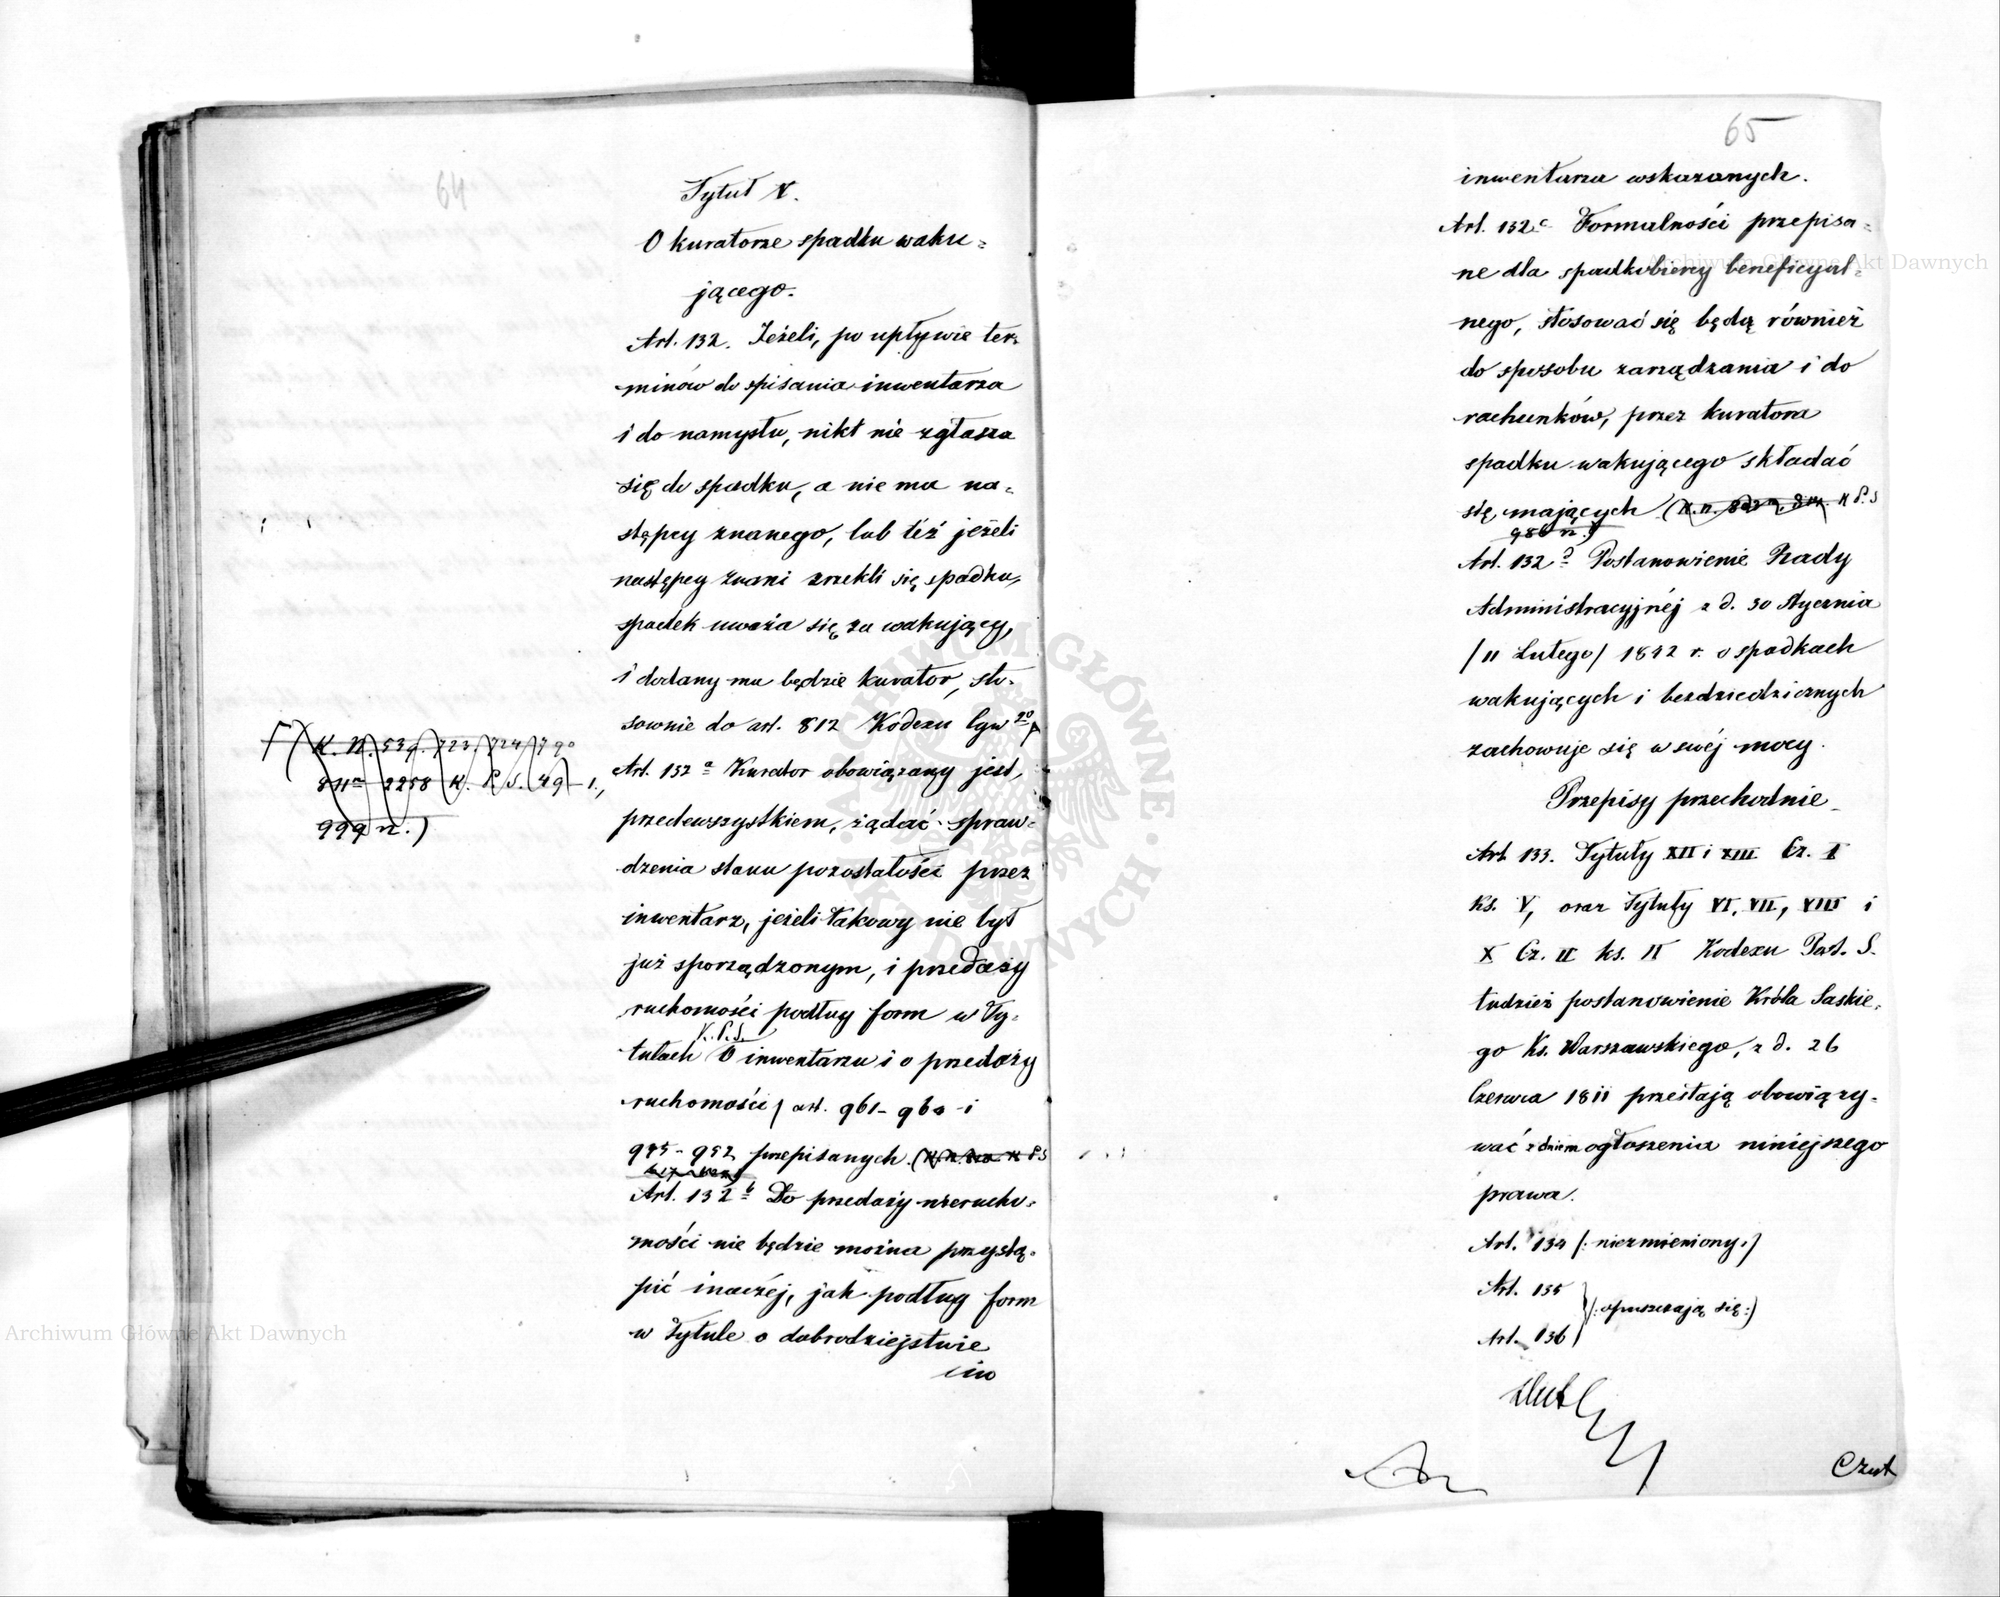 64
Tytuł V.
O kuratorze spadku waku=
jącego.
Art. 132. Jeżeli, po upływie ter=
minów do spisania inwentarza
i do namysłu, nikt nie zgłasza
się do spadku, a nie ma na=
stępcy znanego, lub też jeżeli
następcy znani zrzekli się spadku,
spadek uważa się za wakujący,
i dodany mu będzie kurator, sto=
sownie do art. 812 Kodexu Cyw
(K. N. 539. 723. 724. 790
811a 2258 K. P. S. 49
999 n.)
Art. 132 a Kurator obowiązany jest,
przedewszystkiem, żądać spraw=
dzenia stanu pozostałości przez
inwentarz, jeżeli takowy nie był
już sporządzonym, i przedaży
ruchomości podług form w Ty=
K. P. S.
tułach O inwentarzu i o przedaży
ruchomości, art. 961-960 i
945-952 przepisanych
Art. 132 b Do przedaży nierucho=
mości nie będzie można przystą=
pić inaczéj, jak podług form
w Tytule o dobrodziejstwie
inw
65
inwentarza wskazanych.
Art. 132 c Formalności przepisa=
ne dla spadkobiercy beneficyal=
nego, stosować się będą również
do sposobu zarządzania i do
rachunków, przez kuratora
spadku wakującego składać
się mających K P. S
986 n.)
Art. 132 d Postanowienie Rady
Administracyjnéj z d. 30 Stycznia
/11 Lutego/ 1842 r. o spadkach
wakujących i bezdziedzicznych
zachowuje się w swéj mocy.
Przepisy przechodnie
Art 133. Tytuły XII i XIII Cz. I
ks. V, oraz Tytuły VI, VII, VIII i
X Cz. II ks. II Kodexu Post. S.
tudzież postanowienie Króla Saskie=
go Ks. Warszawskiego, z d. 26
Czerwca 1811 przestają obowiązy=
wać z dniem ogłoszenia niniejszego
prawa.
Art. 134 (: niezmieniony :)
Art. 135
(: opuszczają się :)
Art. 136
Archiwum Główne Akt Dawnych
Archiwum Główne Akt Dawnych
ARCHIWUM GŁÓWNE AKT DAWNYCH